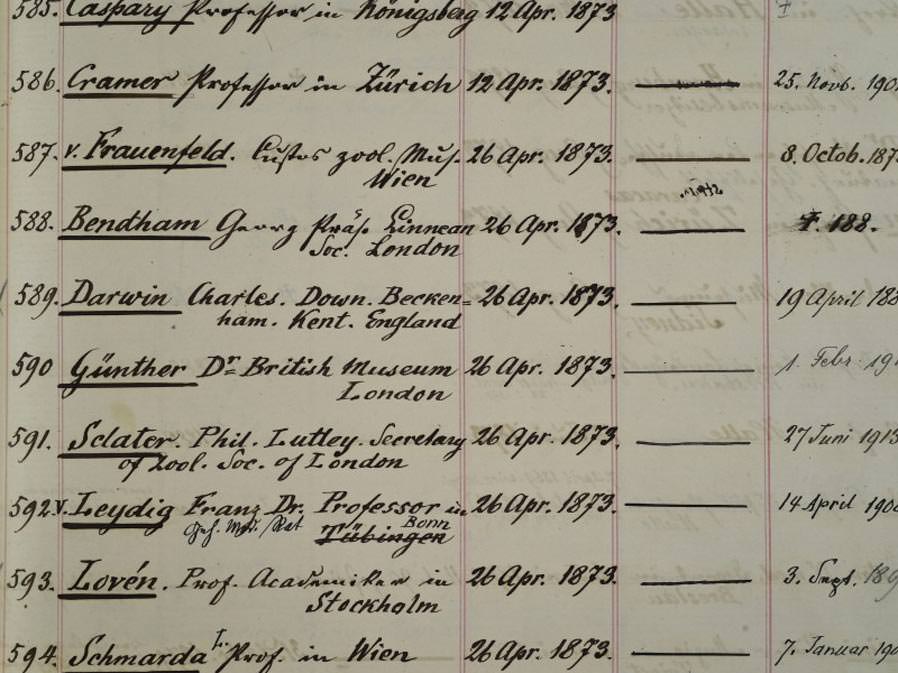 585. Caspary Professor in Königsberg 12 Apr. 1873
586. Cramer Professor in Zürich 12 Apr. 1873. 25. Novb. 190
587. v. Frauenfeld. Custos zool. Mus. 26 Apr. 1873. 8. Octob. 187
Wien
588. Bendham Georg Präs. Linnean 26 Apr. 1873. 188.
Soc. London
589. Darwin Charles. Down. Becken= 26 Apr. 1873. 19 April 188
ham. Kent. England
590 Günther Dr British Museum 26 Apr. 1873. 1. Febr. 19
London
591. Sclater. Phil. Lutley. Secretary 26 Apr. 1873. 27 Juni 1913
of Zool. Soc. of London
592 v. Leydig Franz Dr. Professor in 26 Apr. 1873. 14 April 190
Geh. Med. Rat Bonn
Tübingen
593. Lovén. Prof. Academiker in 26 Apr. 1873. 3. Sept. 189
Stockholm
594. Schmarda L. Prof. in Wien 26 Apr. 1873. 7. Januar 190